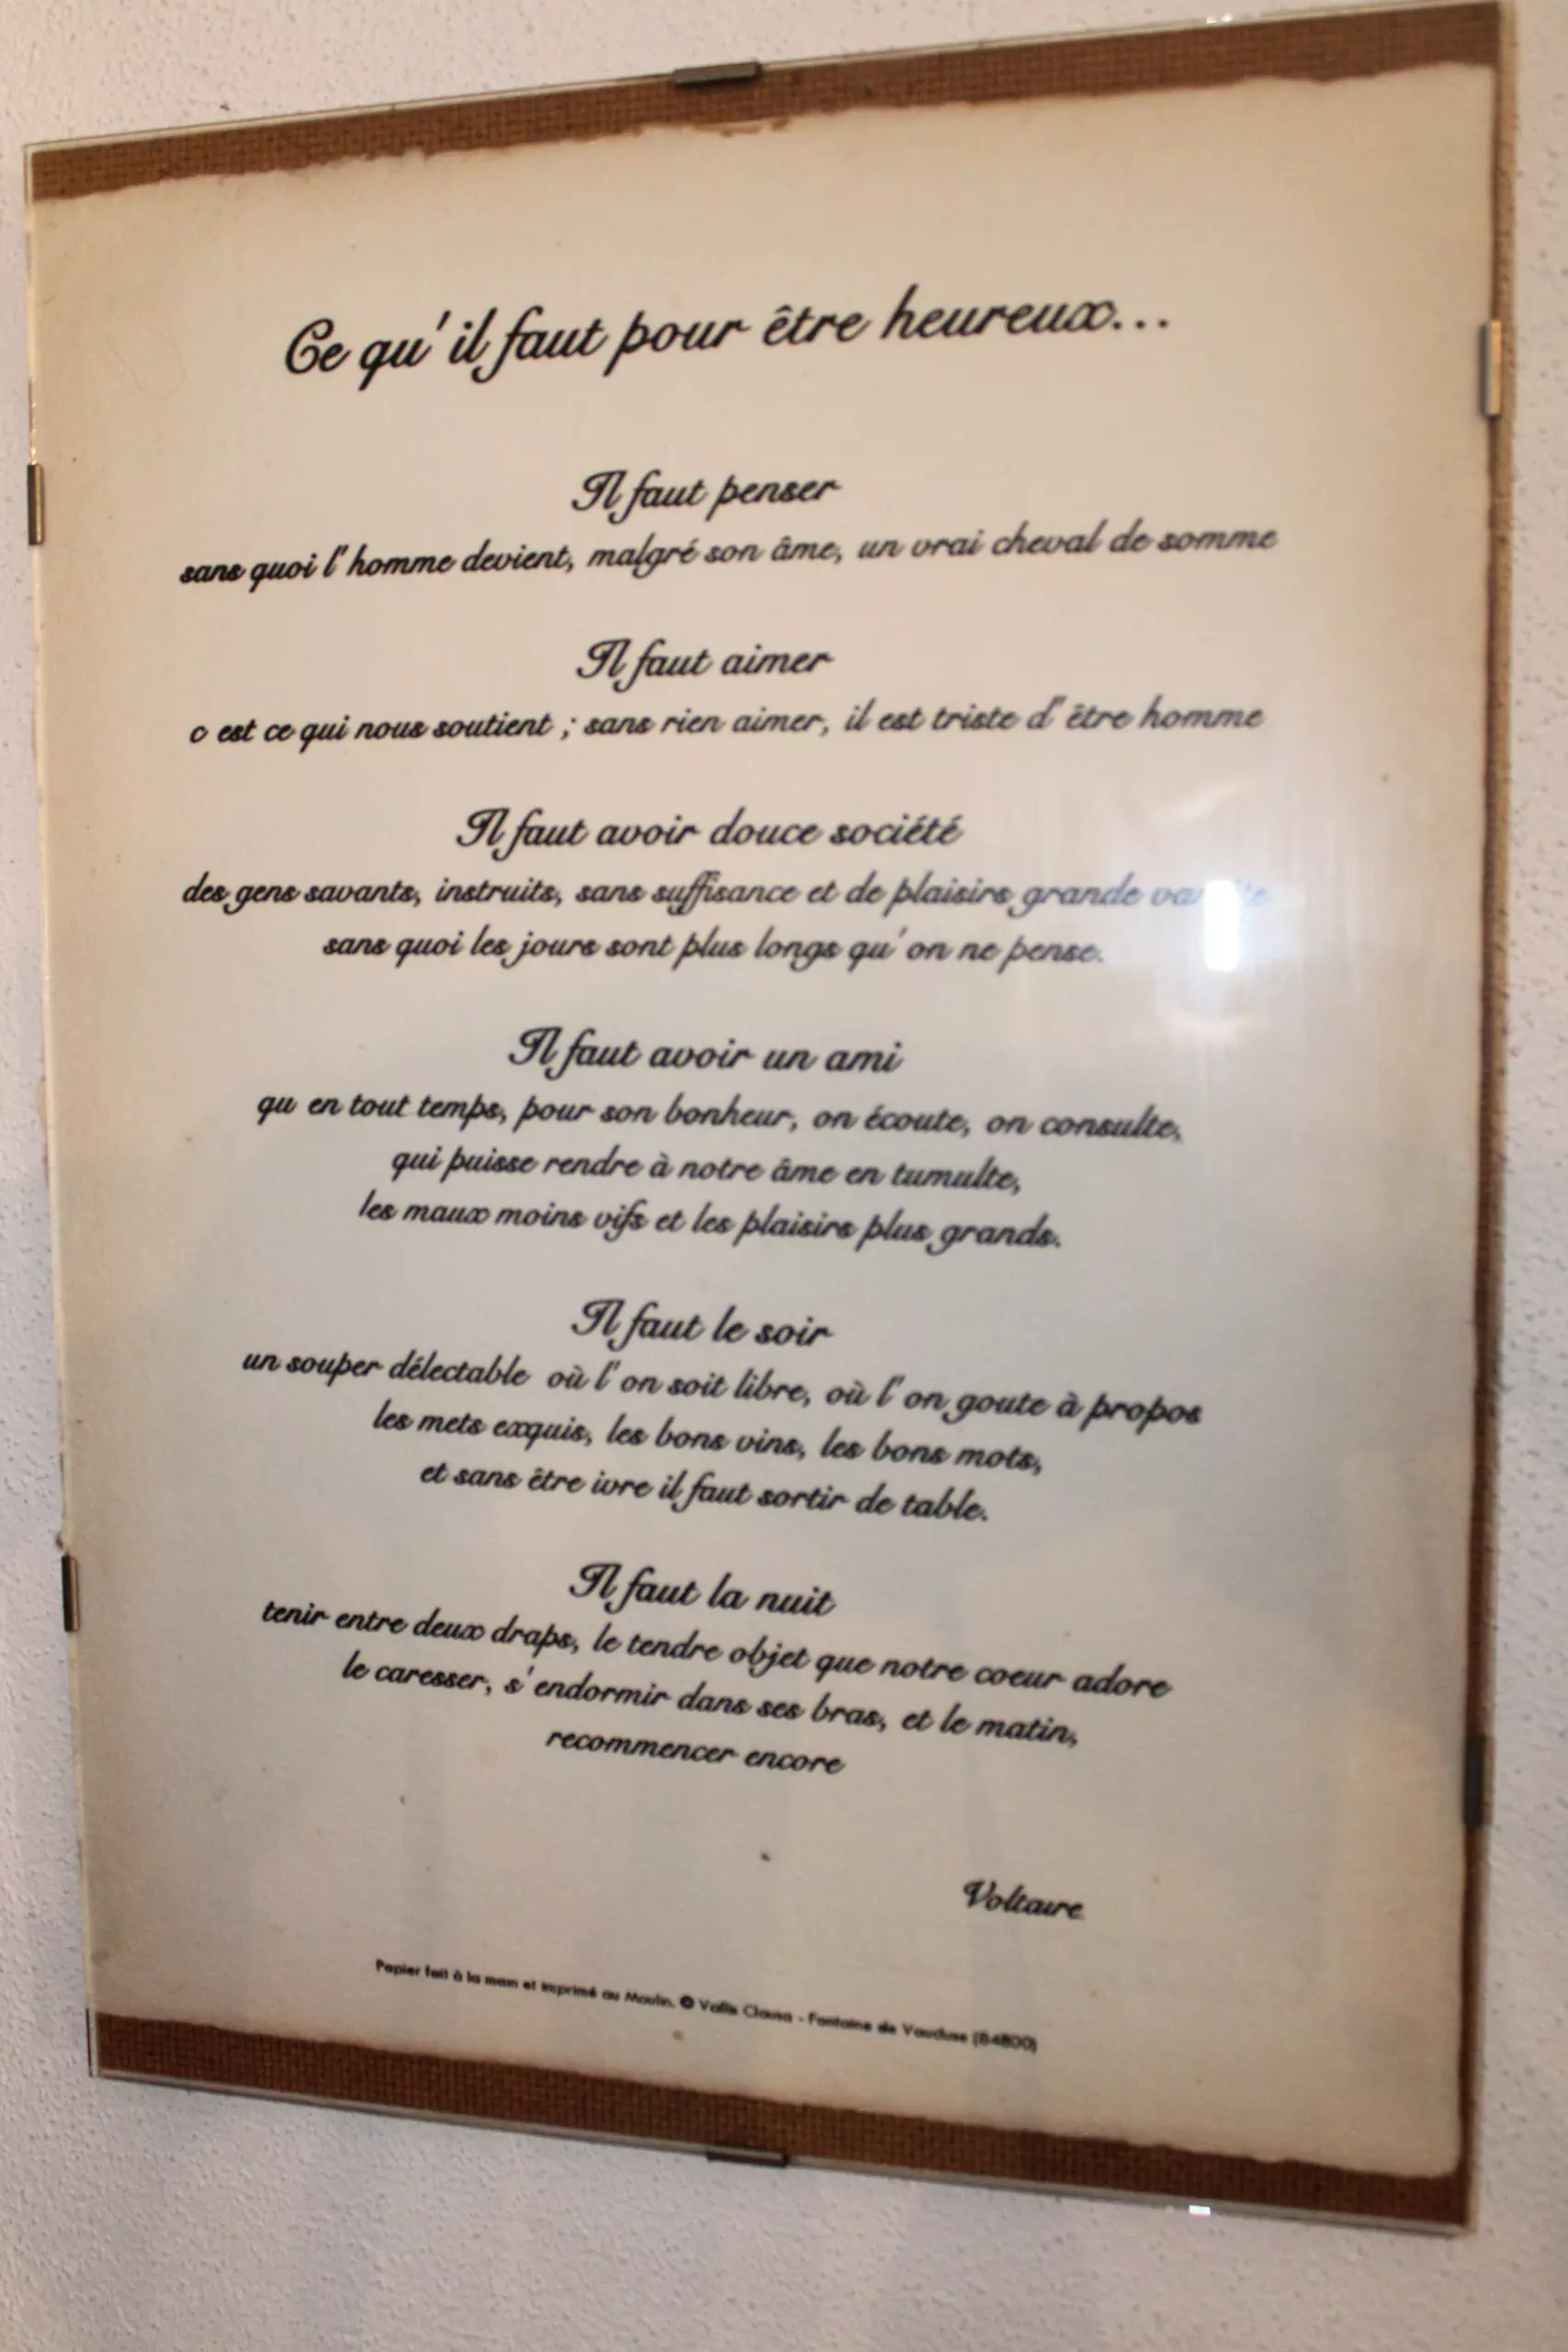 Ce qu'il faut pour être heureux...
Il faut penser
sans quoi l'homme devient, malgré son âme, un vrai cheval de somme
Il faut aimer
c est ce qui nous soutient ; sans rien aimer, il est triste d'être homme
Il faut avoir douce société
des gens savants, instruits, sans suffisance et de plaisirs grande
sans quoi les jours sont plus longs qu'on ne pense.
Il faut avoir un ami
qu en tout temps, pour son bonheur, on écoute, on consulte,
qui puisse rendre à notre âme en tumulte,
les maux moins vifs et les plaisirs plus grands.
Il faut le soir
un souper délectable où l'on soit libre, où l'on goute à propos
les mets exquis, les bons vins, les bons mots,
et sans être ivre il faut sortir de table.
Il faut la nuit
tenir entre deux draps, le tendre objet que notre coeur adore
le caresser, s'endormir dans ses bras, et le matin,
recommencer encore
Voltaire
Papier fait à la main et imprimé au Moulin. © Vallis Clausa - Fontaine de Vaucluse (84800)